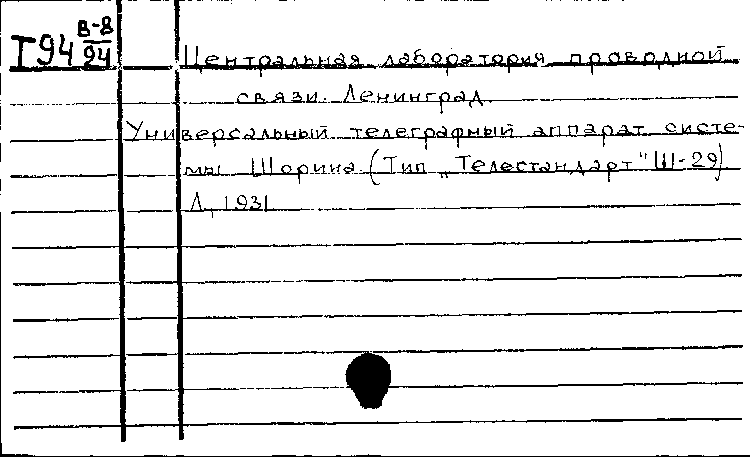 I94 В-8/94
Центральная лаборатория проводной
связи. Ленинград.
Универсальный телеграфный аппарат систе-
мы Шорина (Тип „Телестандарт" Ш-29)
Л., 1931